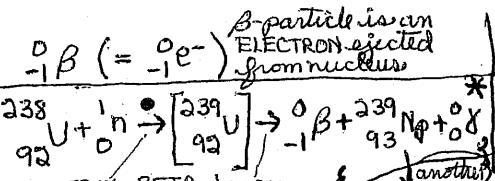 ⁰₋₁β (= ⁰₋₁e⁻) β-particle is an
ELECTRON ejected
from nucleus
*
²³⁸₉₂U + ¹₀n → [²³⁹₉₂U] → ⁰₋₁β + ²³⁹₉₃Np + ⁰₀γ
another